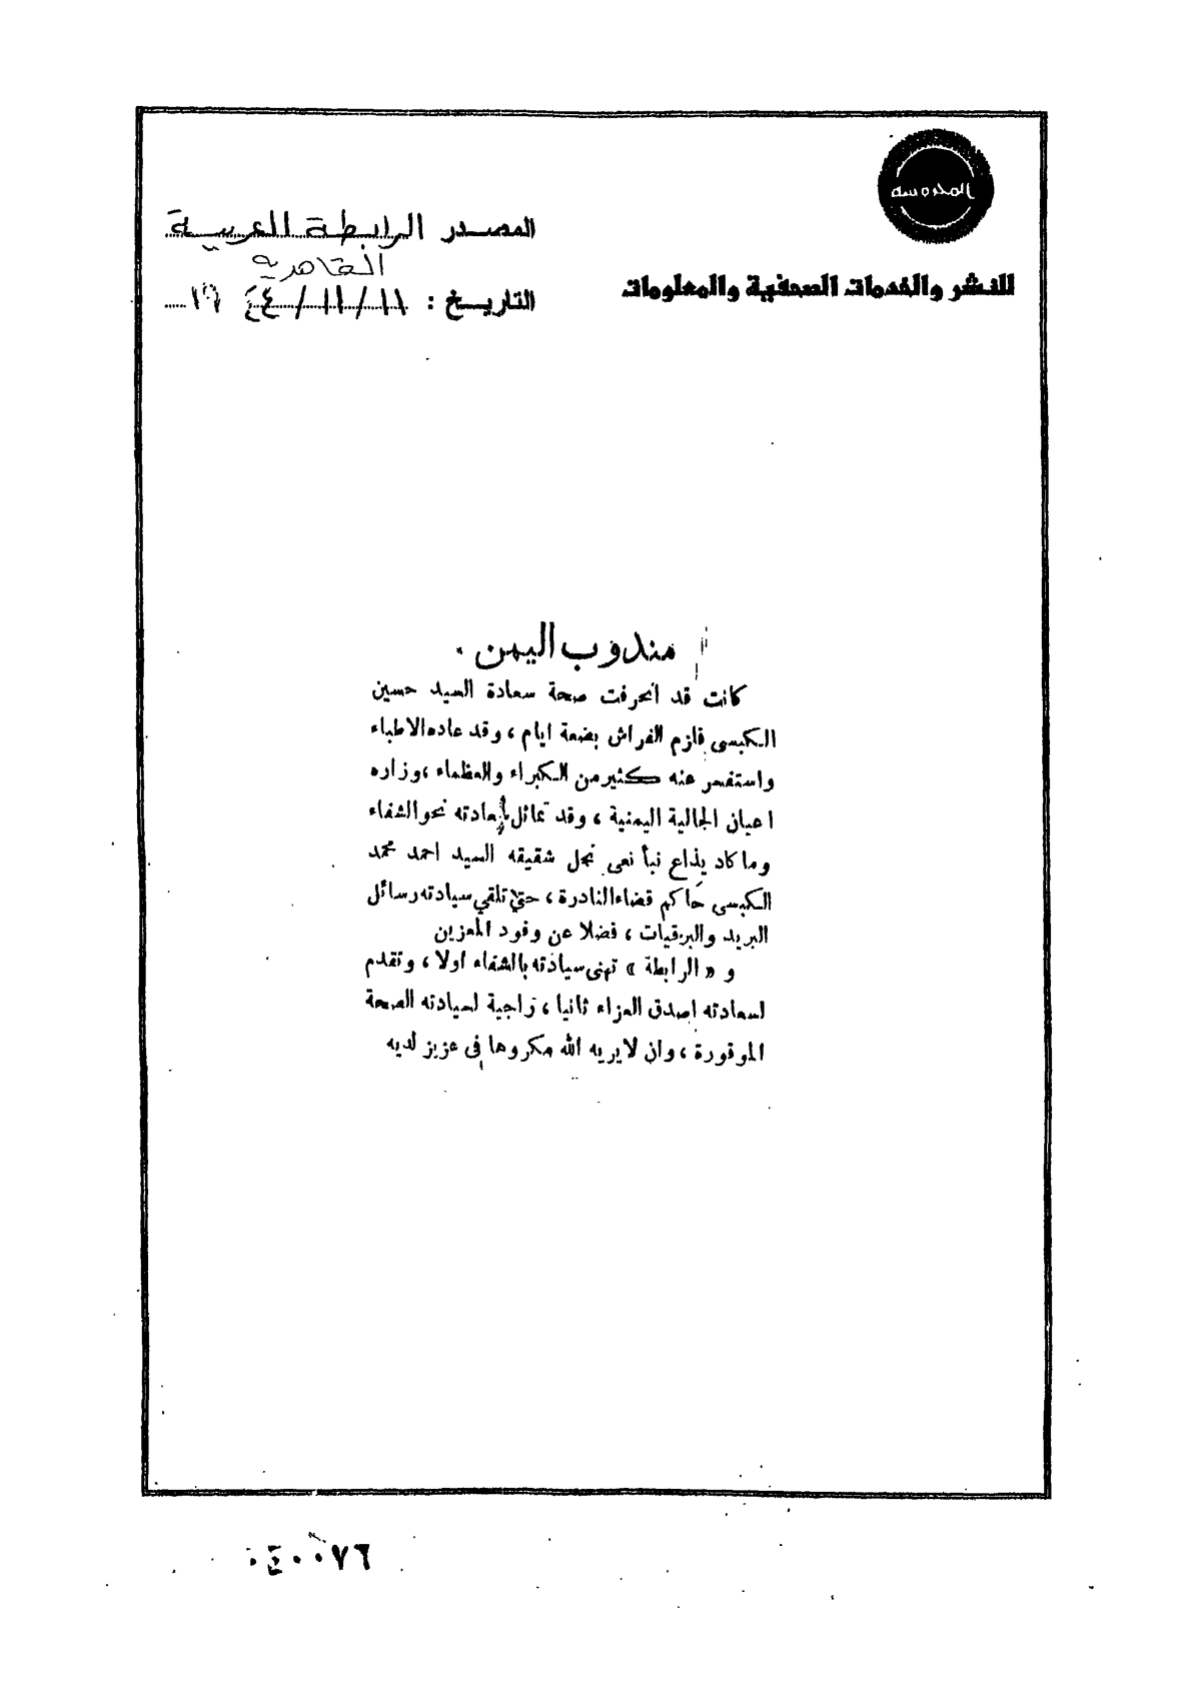 المحروسه
للنشر والخدمات الصحفية والمعلومات
المصدر الرابطة العربية
القاهرية
التاريخ : ١١/١١/٤٤ ١٩
مندوب اليمن
كانت قد انحرفت صحة سعادة السيد حسين
الكبسى فلزم الفراش بضعة ايام ، وقد عاده الاطباء
واستفسر عنه كثير من الكبراء والعظماء ، وزاره
اعيان الجالية اليمنية ، وقد تماثل سعادته نحو الشفاء
وما كاد يذاع نبأ نعى نجل شقيقه السيد احمد محمد
الكبسى حاكم قضاء النادرة ، حتى تلقي سيادته رسائل
البريد والبرقيات ، فضلا عن وفود المعزين
و « الرابطة » تهنى سيادته بالشفاء اولا ، وتقدم
لسعادته اصدق العزاء ثانيا ، راجية لسيادته الصحة
الموفورة ، وان لا يريه الله مكروها فى عزيز لديه
٠٤٠٠٧٦